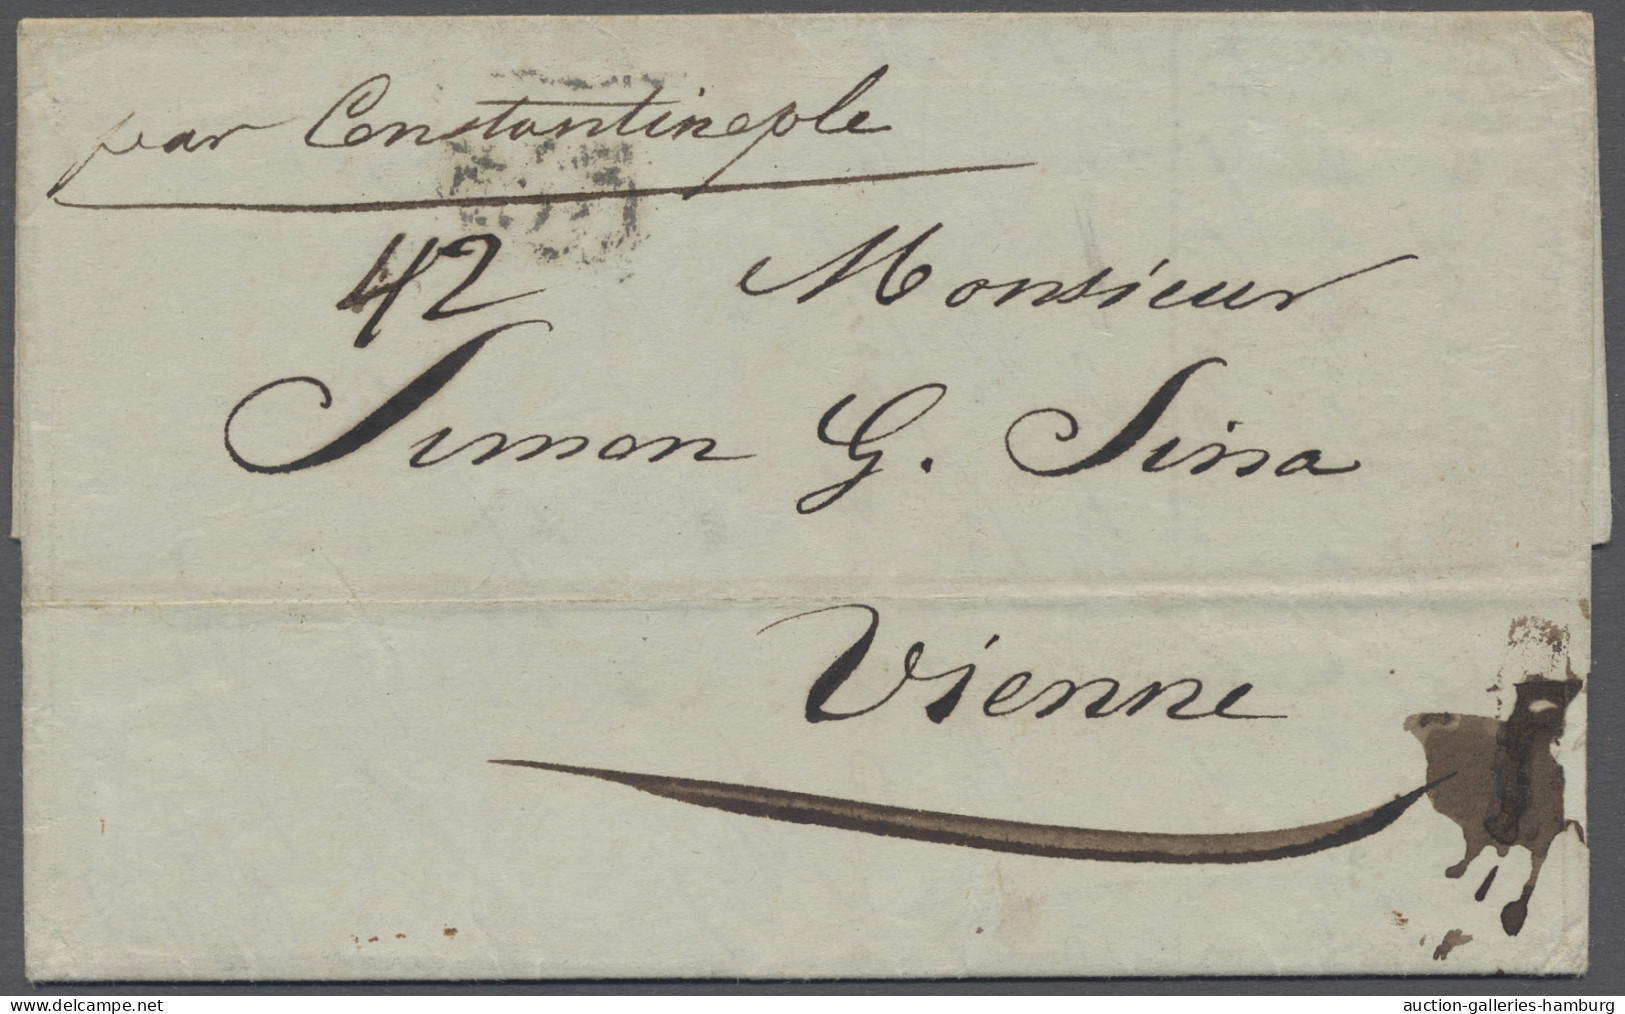 par Constantinople
42 Monsieur
Simon G. Sina
Vienne
www.delcampe.net
auction-galleries-hamburg